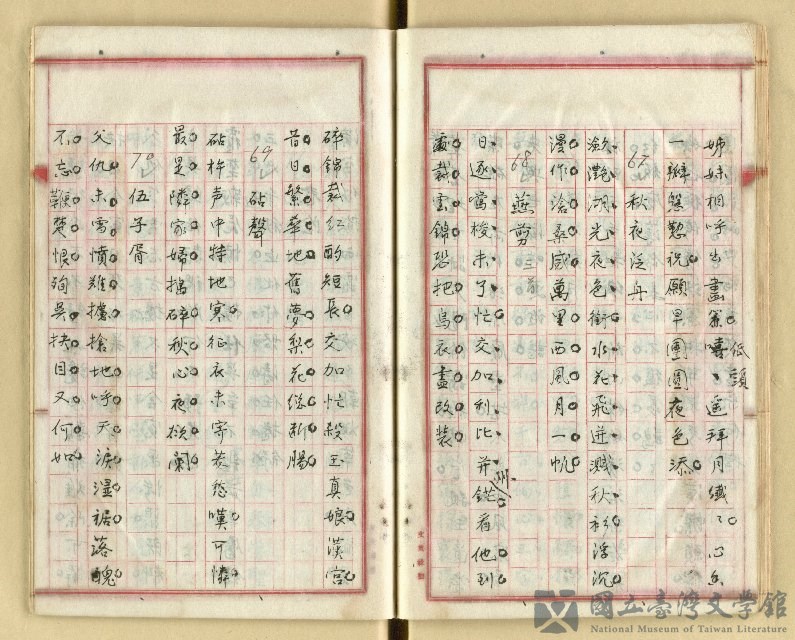 姊妹相呼出畫簾嘻〻遙拜月纖〻心香
低頭
一瓣慇懃祝願早團圓夜色添
67 秋夜泛舟
瀲灧湖光夜色銜水花飛迸濺秋衫浮沉
漫作滄桑感萬里西風月一帆
68 燕剪
日逐當梭未了忙交加利比并鋩看他到
處裁雲錦恐把烏衣盡改裝
碎錦裁紅酌短長交加忙殺玉真娘漢宮
昔日繁華地舊夢梨花總斷腸
69 砧聲
砧杵声中特地寒征衣未寄惹愁嘆可憐
最是隣家婦搗碎秋心夜欲闌
70 伍子胥
父仇未雪憤難擋搶地呼天淚濕裾落魄
不忘鞭楚恨殉吳抉目又何如
國立臺灣文學館
National Museum of Taiwan Literature